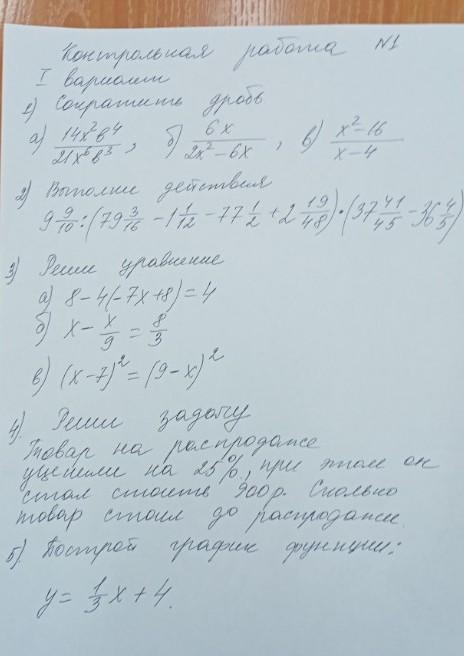 Контрольная работа №1
I вариант
1) Сократить дробь
а) 14x²b⁴/21x⁶b³, б) 6x/2x²-6x, в) x²-16/x-4
2) Выполни действия
9 9/10 : (79 3/16 - 1 1/12 - 77 1/2 + 2 19/48) · (37 41/45 - 36 4/5)
3) Реши уравнение
а) 8-4(-7x+8)=4
б) x - x/9 = 8/3
в) (x-7)² = (9-x)²
4). Реши задачу
Товар на распродаже
уценили на 25%, при этом он
стал стоить 900р. Сколько
товар стоил до распродажи.
5). Построй график функции:
y = 1/3 x + 4.